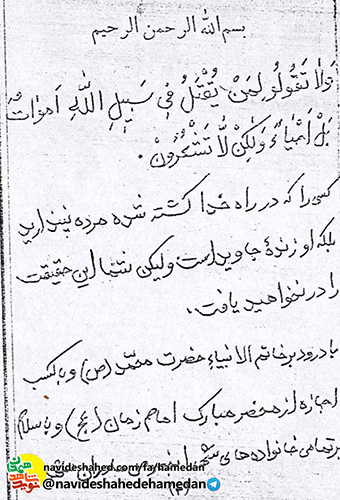 بسم الله الرحمن الرحیم
وَلاٰ تَقُولُو لِمَنْ یُقْتَلُ فِی سَبیٖلِ اللّٰهِ اَمواتٌ
بَلْ اَحْیاءٌ وَلٰکِنْ لاٰ تَشْعُرُونْ.
کسی را که در راه خدا کشته شده مرده نپندارید
بلکه او زندهٔ جاوید است ولیکن شما این حقیقت
را در نخواهید یافت.
با درود بر خاتم الانبیاء حضرت محمّد (ص) و با کسب
اجازه از محضر مبارک امام زمان (عج) و با سلام
بر تمامی خانواده های
navideshahed.com/fa/hamedan
@navideshahedehamedan